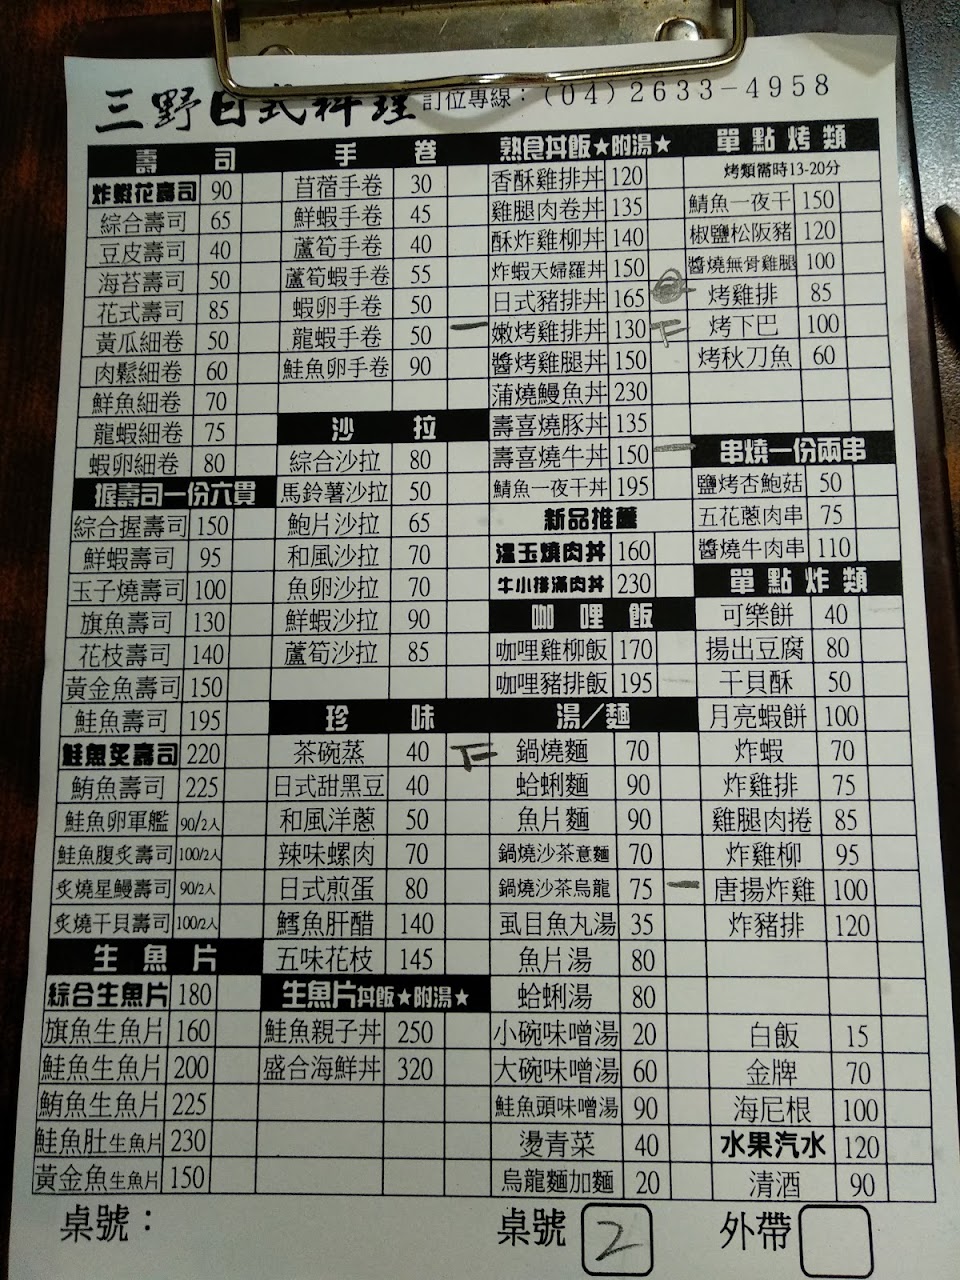 三野日式料理 訂位專線：(04)2633-4958
壽司
炸蝦花壽司 90
綜合壽司 65
豆皮壽司 40
海苔壽司 50
花式壽司 85
黃瓜細卷 50
肉鬆細卷 60
鮮魚細卷 70
龍蝦細卷 75
蝦卵細卷 80
握壽司一份六貫
綜合握壽司 150
鮮蝦壽司 95
玉子燒壽司 100
旗魚壽司 130
花枝壽司 140
黃金魚壽司 150
鮭魚壽司 195
鮭魚炙壽司 220
鮪魚壽司 225
鮭魚卵軍艦 90/2入
鮭魚腹炙壽司 100/2入
炙燒星鰻壽司 90/2入
炙燒干貝壽司 100/2入
生魚片
綜合生魚片 180
旗魚生魚片 160
鮭魚生魚片 200
鮪魚生魚片 225
鮭魚肚生魚片 230
黃金魚生魚片 150
手卷
苜蓿手卷 30
鮮蝦手卷 45
蘆筍手卷 40
蘆筍蝦手卷 55
蝦卵手卷 50
龍蝦手卷 50 一
鮭魚卵手卷 90
沙拉
綜合沙拉 80
馬鈴薯沙拉 50
鮑片沙拉 65
和風沙拉 70
魚卵沙拉 70
鮮蝦沙拉 90
蘆筍沙拉 85
珍味
茶碗蒸 40 下
日式甜黑豆 40
和風洋蔥 50
辣味螺肉 70
日式煎蛋 80
鱈魚肝醋 140
五味花枝 145
生魚片丼飯★附湯★
鮭魚親子丼 250
盛合海鮮丼 320
熟食丼飯★附湯★
香酥雞排丼 120
雞腿肉卷丼 135
酥炸雞柳丼 140
炸蝦天婦羅丼 150
日式豬排丼 165
嫩烤雞排丼 130 下
醬烤雞腿丼 150
蒲燒鰻魚丼 230
壽喜燒豚丼 135
壽喜燒牛丼 150 一
鯖魚一夜干丼 195
新品推薦
溫玉燒肉丼 160
牛小排滿肉丼 230
咖哩飯
咖哩雞柳飯 170
咖哩豬排飯 195
湯/麵
鍋燒麵 70
蛤蜊麵 90
魚片麵 90
鍋燒沙茶意麵 70
鍋燒沙茶烏龍 75 一
虱目魚丸湯 35
魚片湯 80
蛤蜊湯 80
小碗味噌湯 20
大碗味噌湯 60
鮭魚頭味噌湯 90
燙青菜 40
烏龍麵加麵 20
單點烤類
烤類需時13-20分
鯖魚一夜干 150
椒鹽松阪豬 120
醬燒無骨雞腿 100
烤雞排 85
烤下巴 100
烤秋刀魚 60
串燒一份兩串
鹽烤杏鮑菇 50
五花蔥肉串 75
醬燒牛肉串 110
單點炸類
可樂餅 40
揚出豆腐 80
干貝酥 50
月亮蝦餅 100
炸蝦 70
炸雞排 75
雞腿肉捲 85
炸雞柳 95
唐揚炸雞 100
炸豬排 120
白飯 15
金牌 70
海尼根 100
水果汽水 120
清酒 90
桌號： 桌號 2 外帶